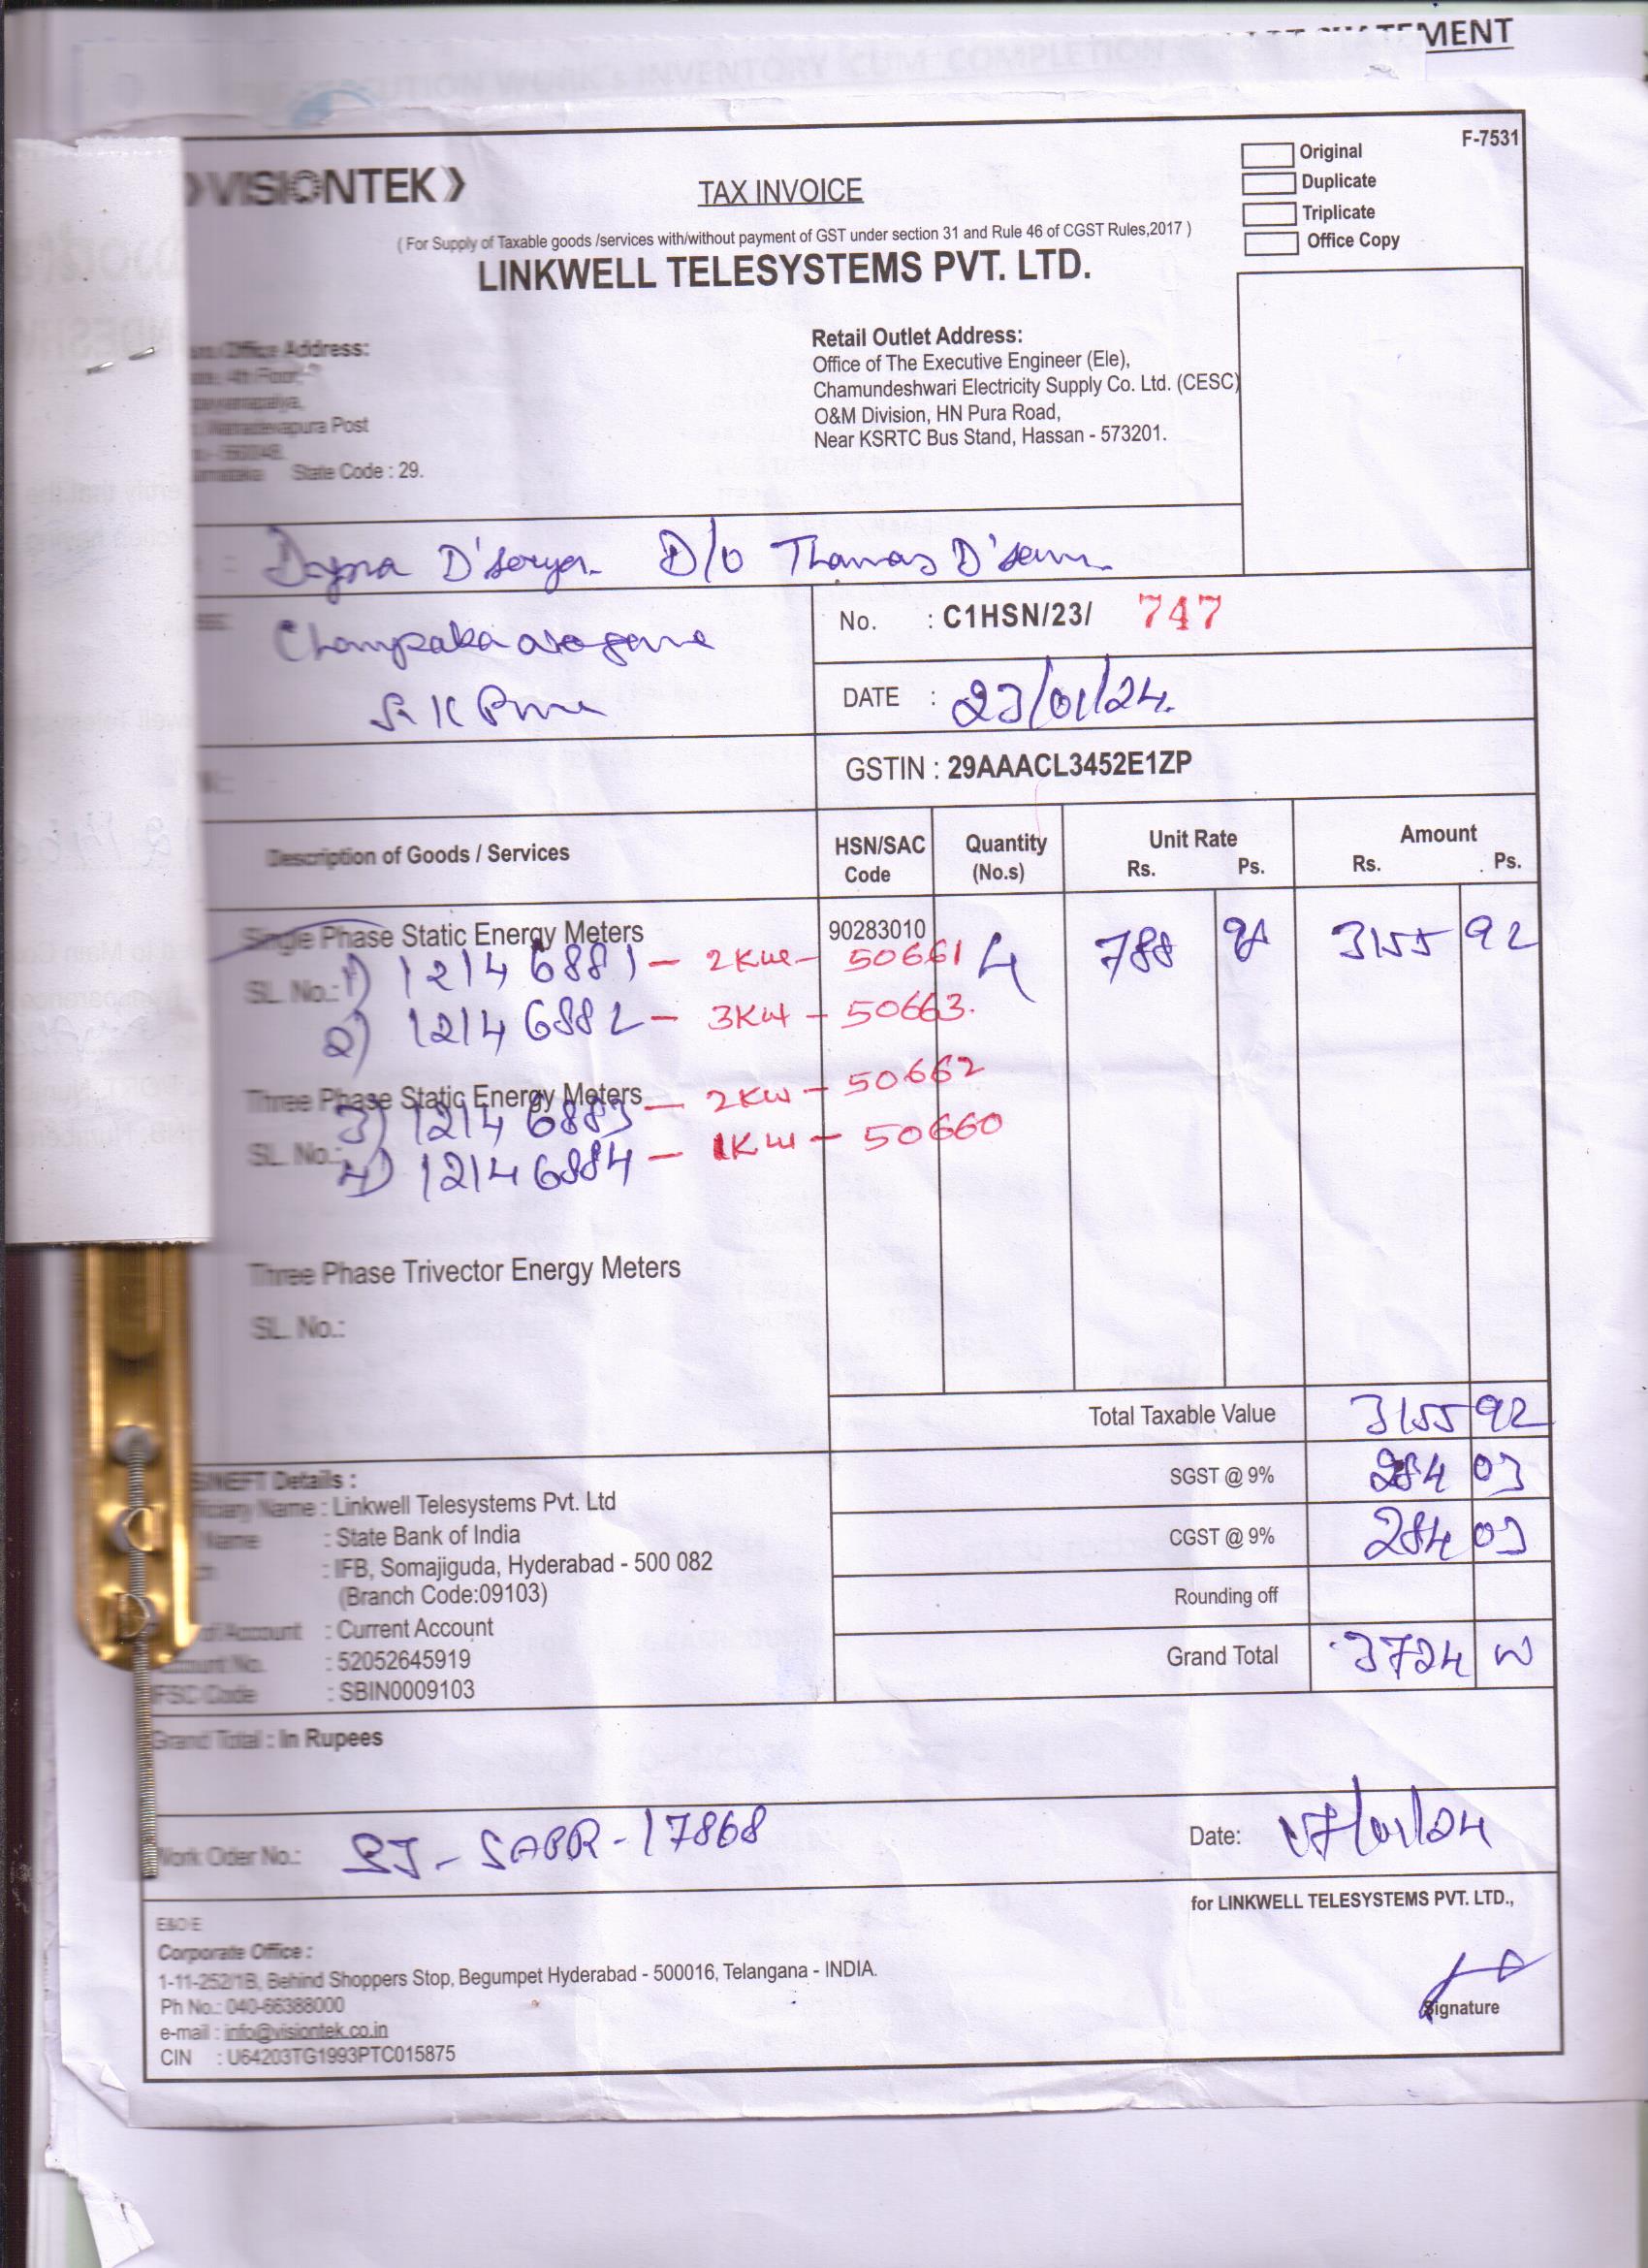 MENT
F-7531
Original
Duplicate
Triplicate
Office Copy
VISIONTEK
TAX INVOICE
( For Supply of Taxable goods /services with/without payment of GST under section 31 and Rule 46 of CGST Rules,2017 )
LINKWELL TELESYSTEMS PVT. LTD.
Office Address:
4th Floor,
Post
State Code : 29.
Retail Outlet Address:
Office of The Executive Engineer (Ele),
Chamundeshwari Electricity Supply Co. Ltd. (CESC)
O&M Division, HN Pura Road,
Near KSRTC Bus Stand, Hassan - 573201.
D/o Thomas
No. : C1HSN/23/ 747
DATE : 23/01/24.
GSTIN : 29AAACL3452E1ZP
Description of Goods / Services HSN/SAC Code Quantity (No.s) Unit Rate Rs. Ps. Amount Rs. Ps.
Single Phase Static Energy Meters 90283010 4 788 98 3155 92
SL. No.: 1) 12146881 - 2KW - 50661
2) 12146882 - 3KW - 50663.
Three Phase Static Energy Meters
3) 12146883 - 2KW - 50662
SL. No.: 4) 12146884 - 1KW - 50660
Three Phase Trivector Energy Meters
SL. No.:
Total Taxable Value 3155 92
SGST @ 9% 284 03
CGST @ 9% 284 03
Rounding off
Grand Total 3724 00
/NEFT Details :
Name : Linkwell Telesystems Pvt. Ltd
Name : State Bank of India
: IFB, Somajiguda, Hyderabad - 500 082
(Branch Code:09103)
of Account : Current Account
No. : 52052645919
Code : SBIN0009103
Grand Total : In Rupees
Work Oder No.: 17868
Date:
for LINKWELL TELESYSTEMS PVT. LTD.,
E&O E
Corporate Office :
1-11-252/1B, Behind Shoppers Stop, Begumpet Hyderabad - 500016, Telangana - INDIA.
Ph No.: 040-66388000
e-mail : info@visiontek.co.in
CIN : U64203TG1993PTC015875
Signature